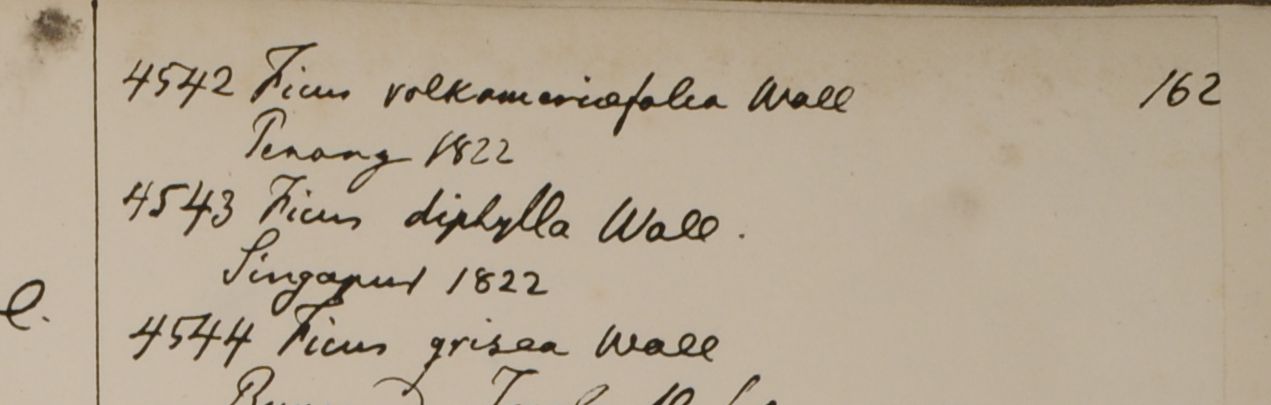 4542 Ficus volkameriæfolia Wall 162
Penang 1822
4543 Ficus diphylla Wall.
Singapur 1822
l.
4544 Ficus grisea Wall